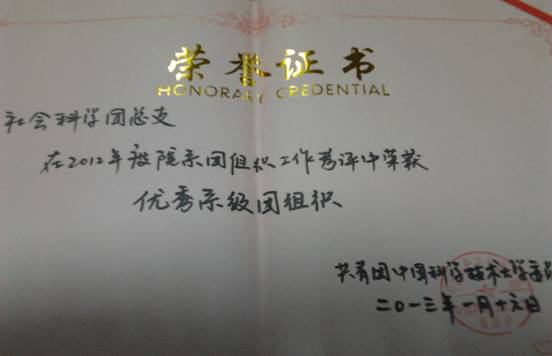 荣誉证书
HONORARY CREDENTIAL
社会科学团总支
在2012年度院系团组织工作考评中荣获
优秀系级团组织
共青团中国科学技术大学委员
二〇一三年一月十六日